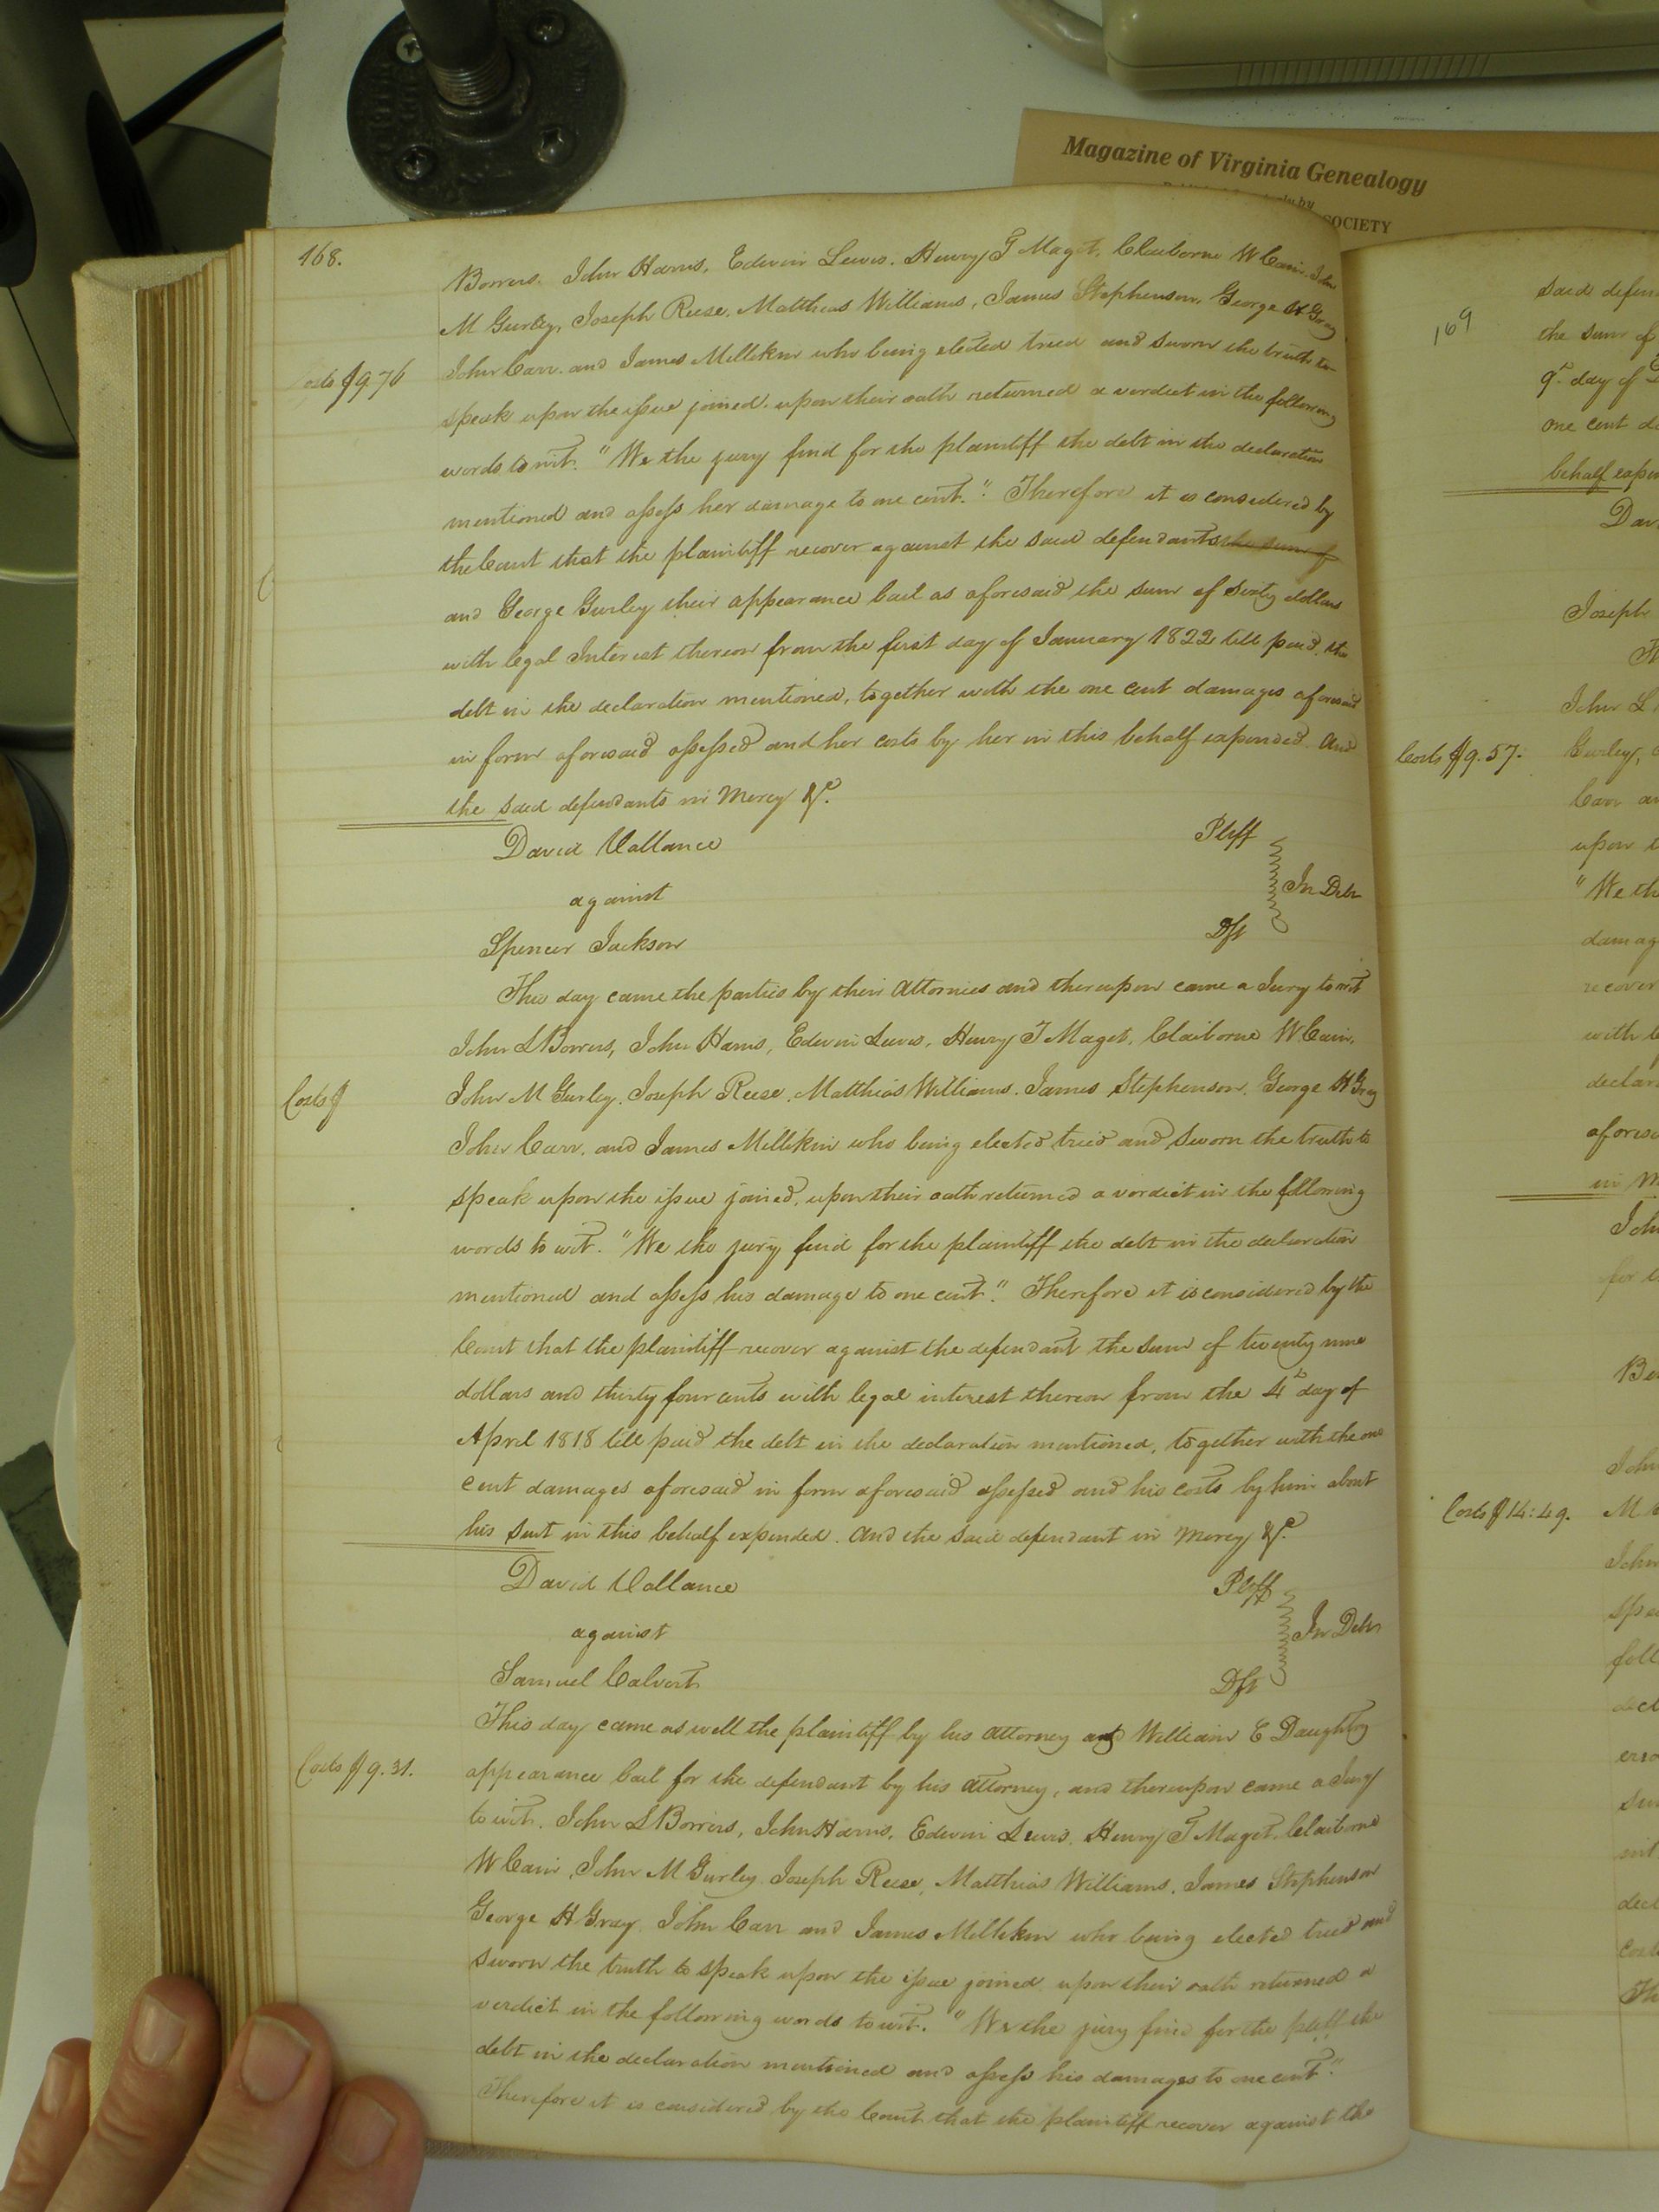 Magazine of Virginia Genealogy
SOCIETY
168.
Borrers. John Harris, Edwin Lewis. Henry T Maget, Claiborne W Cain, John
M Gurley, Joseph Reese, Matthias Williams, James Stephenson, George H Gray
Costs $9.76
John Carr. and James Millikin who being elected tried and sworn the truth to
speak upon the issue joined. upon their oath returned a verdict in the following
words to wit. "We the jury find for the plaintiff the debt in the declaration
mentioned and assess her damage to one cent." Therefore it is considered by
the Court that the plaintiff recover against the said defendants the sum of
and George Gurley their appearance bail as aforesaid the sum of sixty dollars
with legal Interest thereon from the first day of January 1822 till paid, the
debt in the declaration mentioned, together with the one cent damages aforesaid
in form aforesaid assessed and her costs by her in this behalf expended. And
the said defendants in Mercy &c.
David Vallance Pltff
against In Debt
Spencer Jackson Dft
This day came the parties by their Attornies and thereupon came a Jury to wit
John S Borrers, John Harris, Edwin Lewis, Henry T Maget, Claiborne W Cain,
Costs $
John M Gurley, Joseph Reese, Matthias Williams, James Stephenson, George H Gray
John Carr, and James Millikin who being elected tried and sworn the truth to
speak upon the issue joined, upon their oath returned a verdict in the following
words to wit. "We the jury find for the plaintiff the debt in the declaration
mentioned and assess his damage to one cent." Therefore it is considered by the
Court that the plaintiff recover against the defendant the sum of twenty nine
dollars and thirty four cents with legal interest thereon from the 4th day of
April 1818 till paid the debt in the declaration mentioned, together with the one
cent damages aforesaid in form aforesaid assessed and his costs by him about
his suit in this behalf expended. And the said defendant in Mercy &c.
David Vallance Pltff
against In Debt
Samuel Calvert Dft
This day came as well the plaintiff by his Attorney as William E Daughtry
Costs $9.31.
appearance bail for the defendant by his Attorney, and thereupon came a Jury
to wit. John S Borrers, John Harris, Edwin Lewis, Henry T Maget, Claiborne
W Cain, John M Gurley, Joseph Reese, Matthias Williams, James Stephenson
George H Gray, John Carr and James Millikin who being elected tried and
sworn the truth to speak upon the issue joined upon their oath returned a
verdict in the following words to wit. "We the jury find for the pltff the
debt in the declaration mentioned and assess his damages to one cent."
Therefore it is considered by the Court that the plaintiff recover against the
169
said
the sum of
9th day of
one cent
behalf
Joseph
Costs $9.57.
Gurley,
Carr
upon
"We
recover
with
in
Costs $14:49.